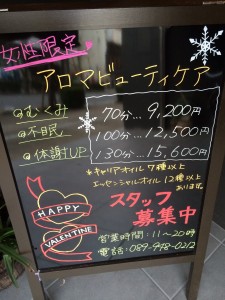 女性限定
アロマビューティケア
@むくみ
@不眠
@体謝UP
70分…9,200円
100分…12,500円
130分…15,600円
*キャリアオイル 7種以上
エッセンシャルオイル 12種以上
あります。
HAPPY
VALENTINE
スタッフ
募集中
営業時間:11~20時
電話:089-998-0212